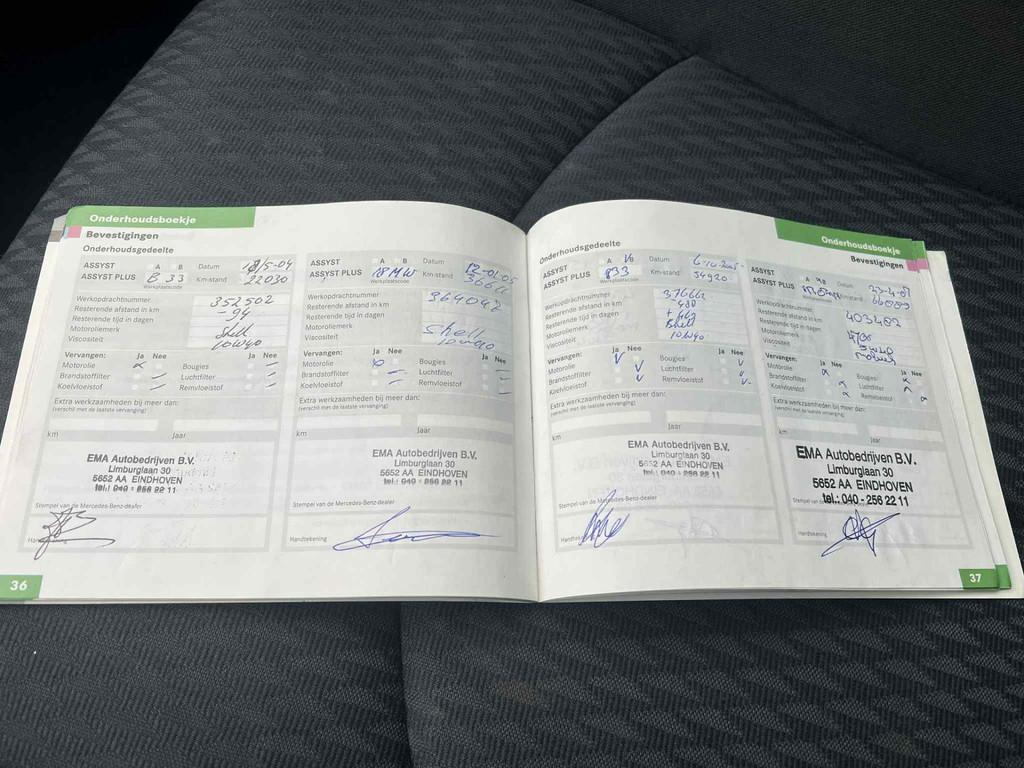 Onderhoudsboekje
Bevestigingen
Onderhoudsgedeelte
ASSYST A B Datum
ASSYST PLUS B 33 Km-stand 22030
Werkplaatscode
Werkopdrachtnummer 352502
Resterende afstand in km -94
Resterende tijd in dagen
Motoroliemerk Shell
Viscositeit 10W40
Vervangen: Ja Nee Ja Nee
Motorolie Bougies
Brandstoffilter Luchtfilter
Koelvloeistof Remvloeistof
Extra werkzaamheden bij meer dan:
(verschil met de laatste vervanging)
km Jaar
EMA Autobedrijven B.V.
Limburglaan 30
5652 AA EINDHOVEN
tel.: 040 - 256 22 11
Stempel van de Mercedes-Benz-dealer
Handtekening
36
ASSYST A B Datum 12-01-05
ASSYST PLUS Km-stand
Werkplaatscode
Werkopdrachtnummer 364042
Resterende afstand in km
Resterende tijd in dagen
Motoroliemerk Shell
Viscositeit 10W40
Vervangen: Ja Nee Ja Nee
Motorolie Bougies
Brandstoffilter Luchtfilter
Koelvloeistof Remvloeistof
Extra werkzaamheden bij meer dan:
(verschil met de laatste vervanging)
km Jaar
EMA Autobedrijven B.V.
Limburglaan 30
5652 AA EINDHOVEN
tel.: 040 - 256 22 11
Stempel van de Mercedes-Benz-dealer
Handtekening
Onderhoudsgedeelte
ASSYST A Datum 6-10-2005
ASSYST PLUS 833 Km-stand 54920
Werkplaatscode
Werkopdrachtnummer 376662
Resterende afstand in km
Resterende tijd in dagen
Motoroliemerk Shell
Viscositeit 10W40
Vervangen: Ja Nee Ja Nee
Motorolie Bougies
Brandstoffilter Luchtfilter
Koelvloeistof Remvloeistof
Extra werkzaamheden bij meer dan:
(verschil met de laatste vervanging)
km Jaar
EMA Autobedrijven B.V.
Limburglaan 30
5652 AA EINDHOVEN
tel.: 040 - 256 22 11
Stempel van de Mercedes-Benz-dealer
Onderhoudsboekje
Bevestigingen
ASSYST Datum 23-4-07
ASSYST PLUS Km-stand
Werkplaatscode
Werkopdrachtnummer 403402
Resterende afstand in km
Resterende tijd in dagen
Motoroliemerk
Viscositeit 5W40
Vervangen: Ja Nee Ja Nee
Motorolie Bougies
Brandstoffilter Luchtfilter
Koelvloeistof Remvloeistof
Extra werkzaamheden bij meer dan:
(verschil met de laatste vervanging)
km Jaar
EMA Autobedrijven B.V.
Limburglaan 30
5652 AA EINDHOVEN
tel.: 040 - 256 22 11
Handtekening
37